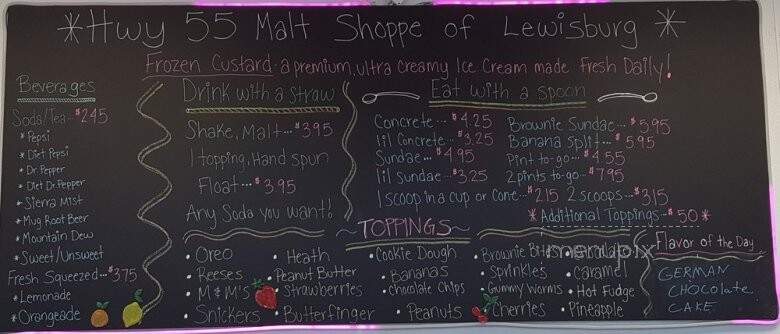 *Hwy 55 Malt Shoppe of Lewisburg*
Frozen Custard - a premium, ultra creamy Ice Cream made Fresh Daily!
Beverages
Soda/Tea--$2.45
* Pepsi
* Diet Pepsi
* Dr. Pepper
* Diet Dr. Pepper
* Sierra Mist
* Mug Root Beer
* Mountain Dew
* Sweet/Unsweet
Fresh Squeezed--$3.75
* Lemonade
* Orangeade
Drink with a straw
Shake, Malt--$3.95
1 topping, Hand spun
Float...$3.95
Any Soda you want!
Eat with a spoon
Concrete...$4.25
lil Concrete...$3.25
Sundae...$4.95
lil Sundae...$3.25
Brownie Sundae...$5.95
Banana split...$5.95
Pint to-go...$4.55
2 pints to-go...$7.95
1 scoop in a cup or cone...$2.15 2 scoops...$3.15
*Additional Toppings--$.50*
~TOPPINGS~
• Oreo
• Reeses
• M&M's
• Snickers
• Heath
• Peanut Butter
• Strawberries
• Butterfinger
• Cookie Dough
• Bananas
• Chocolate Chips
• Peanuts
• Brownie Bites
• Sprinkles
• Gummy Worms
• Cherries
• Caramel
• Hot Fudge
• Pineapple
Flavor of the Day
GERMAN
CHOCOLATE
CAKE
menupix